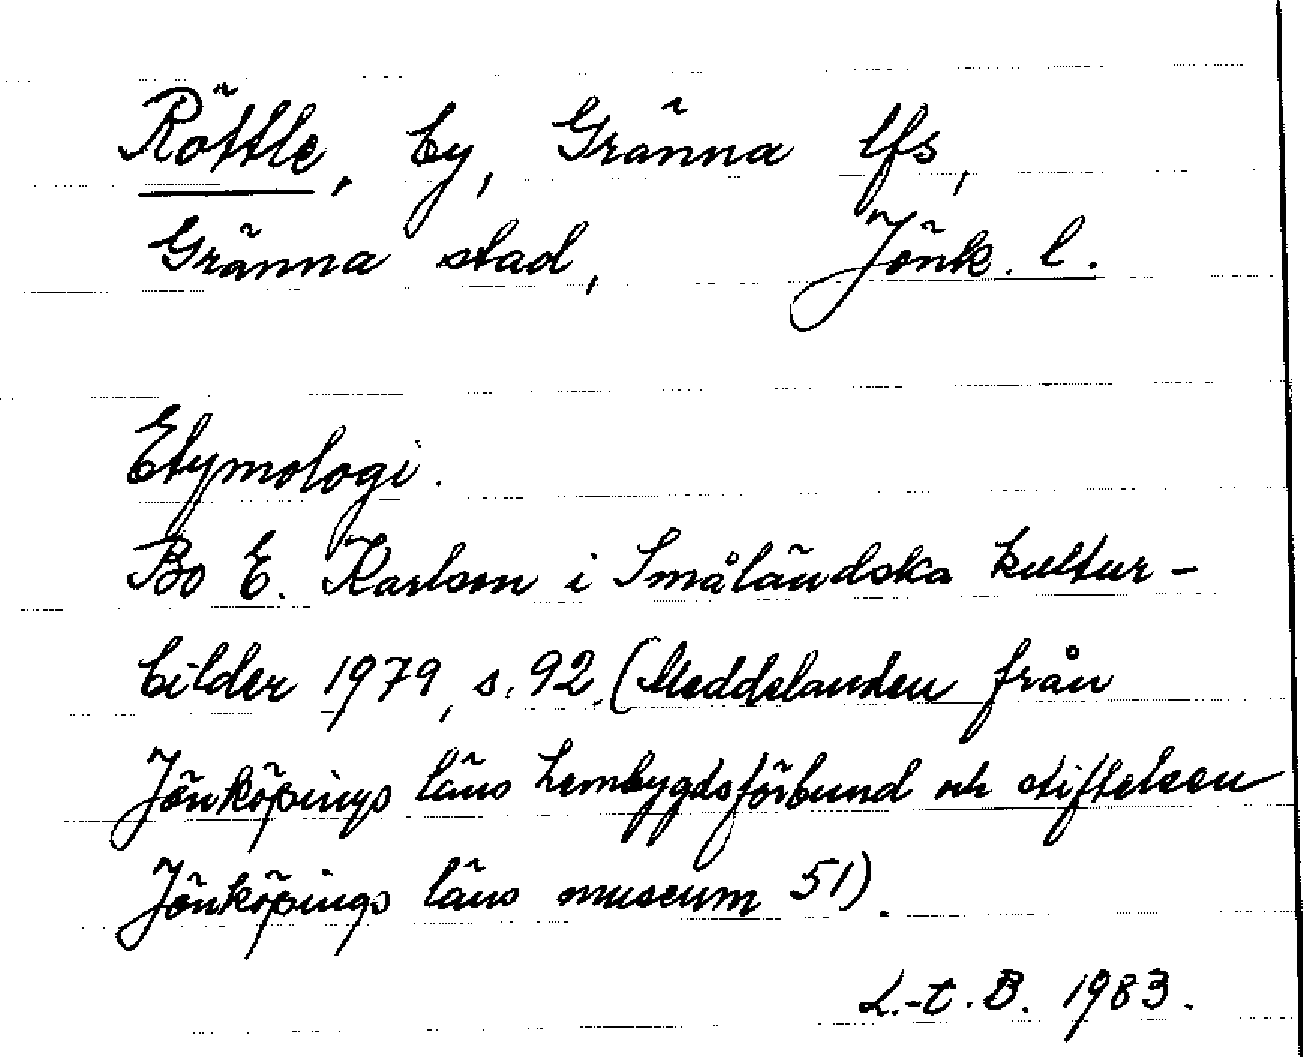 Röttle, by, Gränna lfs,
Gränna stad, Jönk. l.
Etymologi.
Bo E. Karlson i Småländska kultur-
bilder 1979, s. 92. (Meddelanden från
Jönköpings läns hembygdsförbund och stiftelsen
Jönköpings läns museum 51).
L.-t. B. 1983.